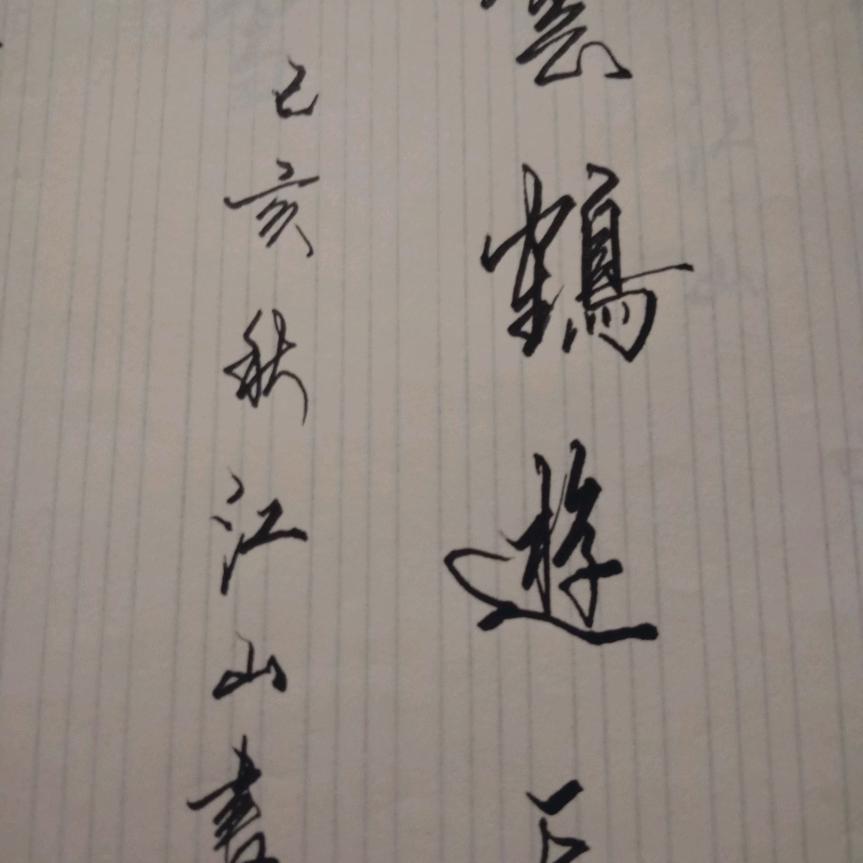 雲鶴遊
己亥秋江山書